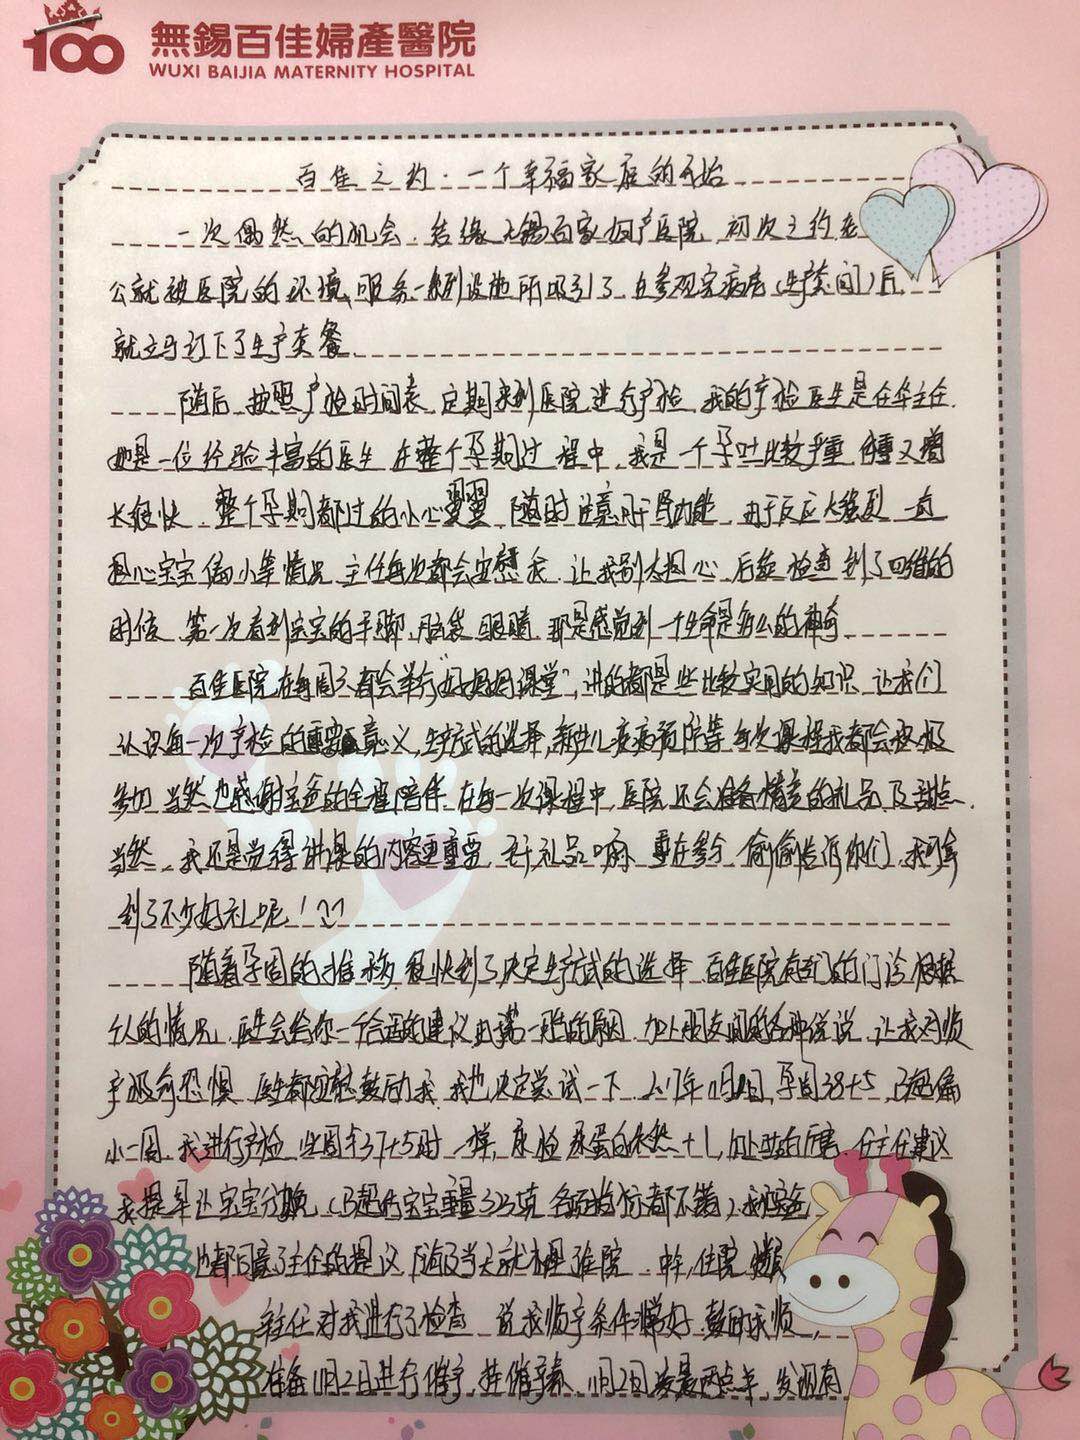 100 無錫百佳婦產醫院
WUXI BAIJIA MATERNITY HOSPITAL
百佳之约·一个幸福家庭的开始
一次偶然的机会,结缘无锡百家妇产医院,初次之约老
公就被医院的环境、服务一系列设施所吸引了,在参观完病房(生产间)后,
就立马订下了生产套餐。
随后,按照产检时间表,定期来到医院进行产检,我的产检医生是任华主任,
她是一位经验丰富的医生,在整个孕期过程中,我是一个孕吐比较严重,体重又增
长很快,整个孕期都过的小心翼翼,随时注意肝肾功能,由于反应太强烈,一直
担心宝宝偏小等情况,主任每次都会安慰我,让我别太担心,后续检查到了四维的
时候,第一次看到宝宝的手脚、脑袋、眼睛,那是感觉到一个生命是多么的神奇。
百佳医院在每周六都会举行"好妈妈课堂",讲的都是些比较实用的知识,让我们
认识每一次产检的重要意义,生产方式的选择,新生儿疾病预防等,每次课程我都会积极
参加,当然也感谢宝爸的全程陪伴,在每一次课程中,医院还会准备精美的礼品及甜点,
当然,我还是觉得讲课的内容更重要,至于礼品嘛,重在参与,偷偷告诉你们,我可拿
到了不少好礼呢!
随着孕周的推移,很快到了决定生产方式的选择,百佳医院有专门的门诊,根据
个人的情况,医生会给你一个合适的建议,由于第一胎的原因,加上朋友间的各种说说,让我对顺
产极有恐惧,医生都安慰鼓励我,我也决定尝试一下,2017年11月1日,孕周38+5,B超偏
小二周,我进行产检,坐周于37+5时一样,尿检尿蛋白依然+1,加上 ,任主任建议
我提早让宝宝分娩,(B超估宝宝重量 克,各项指标都不错),我和宝爸
也都同意了主任的提议,随即当天就办理了住院,中午,住院
主任对我进行了检查,说我顺产条件非常好,鼓励我顺,
准备11月2日进行催产,挂催产素,11月2日凌晨两点半,发现有